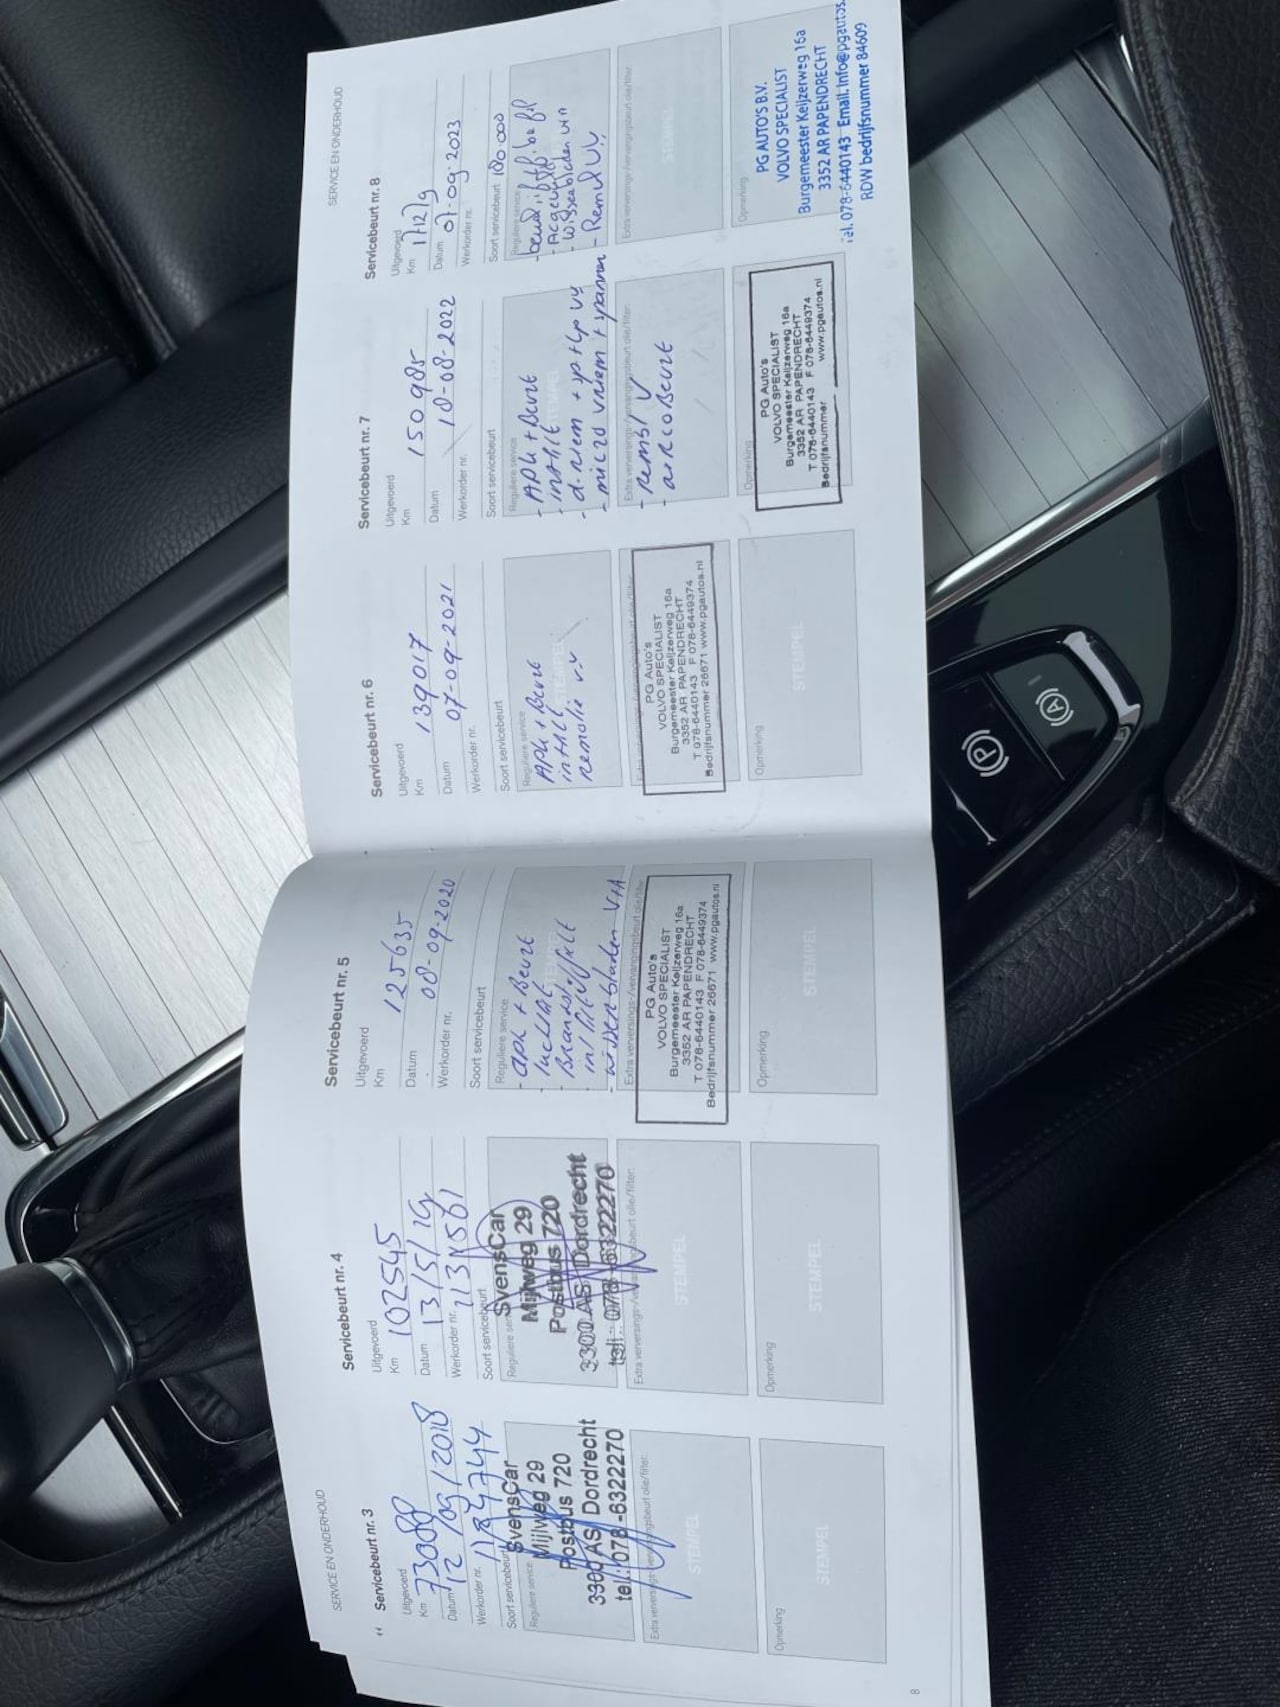 SERVICE EN ONDERHOUD
Servicebeurt nr. 3
Uitgevoerd
Km 73088
Datum 12/09/2018
Werkorder nr. 1187744
Soort servicebeurt
Reguliere service
SvensCar
Mijlweg 29
Postbus 720
3300 AS Dordrecht
tel.: 078-6322270
Extra verversings-/vervangingsbeurt olie/filter:
STEMPEL
Opmerking
STEMPEL
8
Servicebeurt nr. 4
Uitgevoerd
Km 102545
Datum 13/5/19
Werkorder nr.
Soort servicebeurt
Reguliere service
SvensCar
Mijlweg 29
Postbus 720
3300 AS Dordrecht
tel.: 078-6322270
Extra verversings-/vervangingsbeurt olie/filter:
STEMPEL
Opmerking
STEMPEL
Servicebeurt nr. 5
Uitgevoerd
Km 125635
Datum 08-09-2020
Werkorder nr.
Soort servicebeurt
Reguliere service
- apk + Beurt
- luchtf
- Brandstoffilt
- int filt
- wisserbladen V+A
Extra verversings-/vervangingsbeurt olie/filter:
PG Auto's
VOLVO SPECIALIST
Burgemeester Keijzerweg 16a
3352 AR PAPENDRECHT
T 078-6440143 F 078-6449374
Bedrijfsnummer 26671 www.pgautos.nl
Opmerking
STEMPEL
Servicebeurt nr. 6
Uitgevoerd
Km 139017
Datum 07-09-2021
Werkorder nr.
Soort servicebeurt
Reguliere service
APK + Beurt
intfilt
Remolie v.v
STEMPEL
PG Auto's
VOLVO SPECIALIST
Burgemeester Keijzerweg 16a
3352 AR PAPENDRECHT
T 078-6440143 F 078-6449374
Bedrijfsnummer 26671 www.pgautos.nl
Opmerking
STEMPEL
Servicebeurt nr. 7
Uitgevoerd
Km 150985
Datum 10-08-2022
Werkorder nr.
Soort servicebeurt
Reguliere service
- APK + Beurt
- intfilt
- d.riem + sp + wp vv
- micro vriem + spanner
STEMPEL
Extra verversings-/vervangingsbeurt olie/filter:
- rembl V
- aircobeurt
Opmerking
PG Auto's
VOLVO SPECIALIST
Burgemeester Keijzerweg 16a
3352 AR PAPENDRECHT
T 078-6440143 F 078-6449374
Bedrijfsnummer www.pgautos.nl
SERVICE EN ONDERHOUD
Servicebeurt nr. 8
Uitgevoerd
Km
Datum 01-09-2023
Werkorder nr.
Soort servicebeurt 180.000
Reguliere service
- Remol VV
Extra verversings-/vervangingsbeurt olie/filter:
STEMPEL
Opmerking
PG AUTO'S B.V.
VOLVO SPECIALIST
Burgemeester Keijzerweg 16a
3352 AR PAPENDRECHT
Tel. 078-6440143 Email. info@pgautos.
RDW bedrijfsnummer 84609
P
A